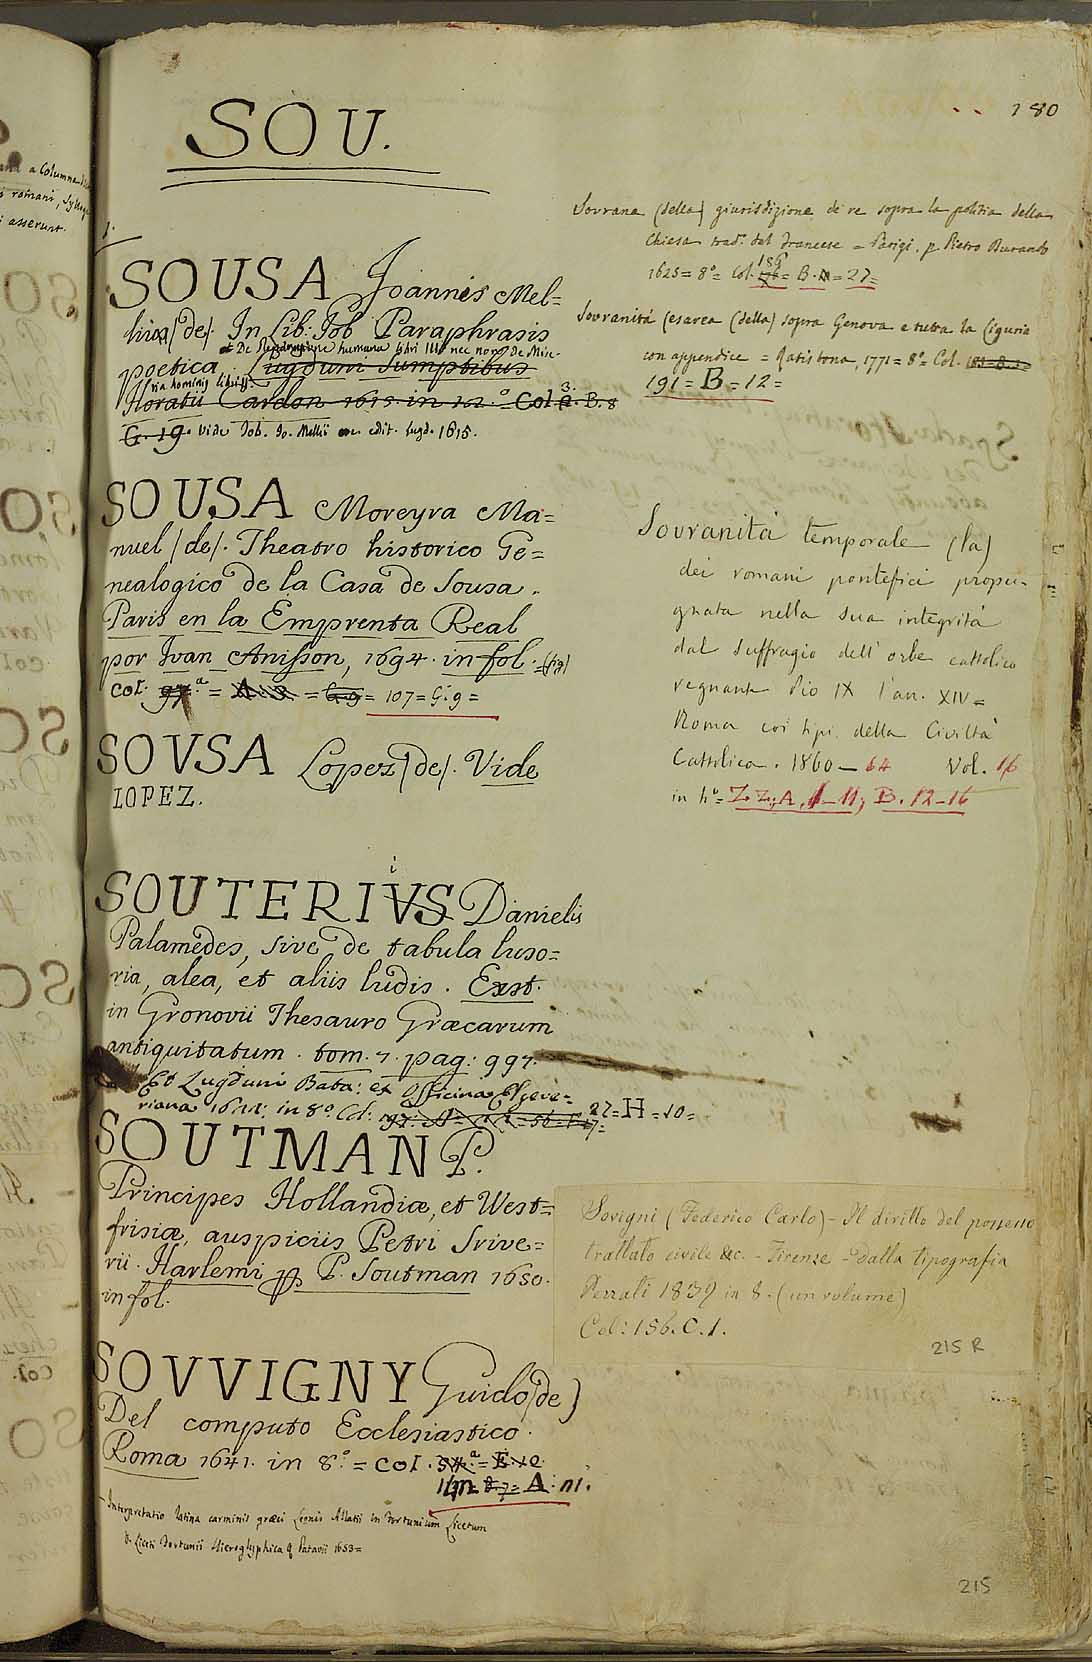 180
SOU.
1.
SOUSA Joannis Mel-
(de). In Lib: Job Paraphrasis
et De Redemptione humana libri III nec non De Mise-
poetica. Lugduni Sumptibus
ria hominis libri
Horatii Cardon 1615. in 12.° Col 3. B. 8
G. 19. Vide Job. Jo. Mellii edit. Lugd. 1615.
SOUSA Moreyra Ma-
nuel (de). Theatro historico Ge-
nealogico de la Casa de Sousa.
Paris en la Emprenta Real
por Ivan Anisson, 1694. in fol. (fig)
col. 97.ª = = G. 9 = 107 = G. 9 =
SOVSA Lopez (de). Vide
LOPEZ.
SOUTERIVS Danielis
i
Palamedes, sive de tabula luso-
ria, alea, et aliis ludis. Exst.
in Gronovii Thesauro Græcarum
antiquitatum. tom. 7. pag: 997.
Et Lugduni Bata: ex Officina Elzeve-
riana in 8° Col: 27 = H = 10 =
SOUTMAN P.
Principes Hollandiæ, et West-
frisiæ, auspiciis Petri Scrive-
rii. Harlemi pp P. Soutman 1650.
in fol.
SOVVIGNY Guido (de)
Del computo Ecclesiastico.
Roma 1641. in 8.° = col.
A. 111.
Interpretatio latina carminis græci Leonis Allatii in Fortunium Licetum
V. Liceti Fortunii Hieroglyphica Patavii 1653 =
Sovrana (della) giurisdizione de re sopra la politia della
Chiesa trad.° dal francese = Parigi. p. Pietro Durando
1625 = 8° = Col. 189 = B. = 27 =
Sovranità Cesarea (della) sopra Genova e tutta la Liguria
con appendice = Ratisbona, 1771 = 8° = Col.
191 = B = 12 =
Sovranità temporale (la)
dei romani pontefici propu-
gnata nella sua integrità
dal suffragio dell' orbe cattolico
regnante Pio IX l'an. XIV =
Roma coi tipi della Civiltà
Cattolica. 1860 — 64 Vol. 16
in 4° = Z. Z., A, 1–11; B. 12–16
Sovigni (Federico Carlo) – Il diritto del possesso
trattato civile &c. – Firenze – dalla tipografia
1839 in 8. (un volume)
Col: 156. C. 1.
215 R
215